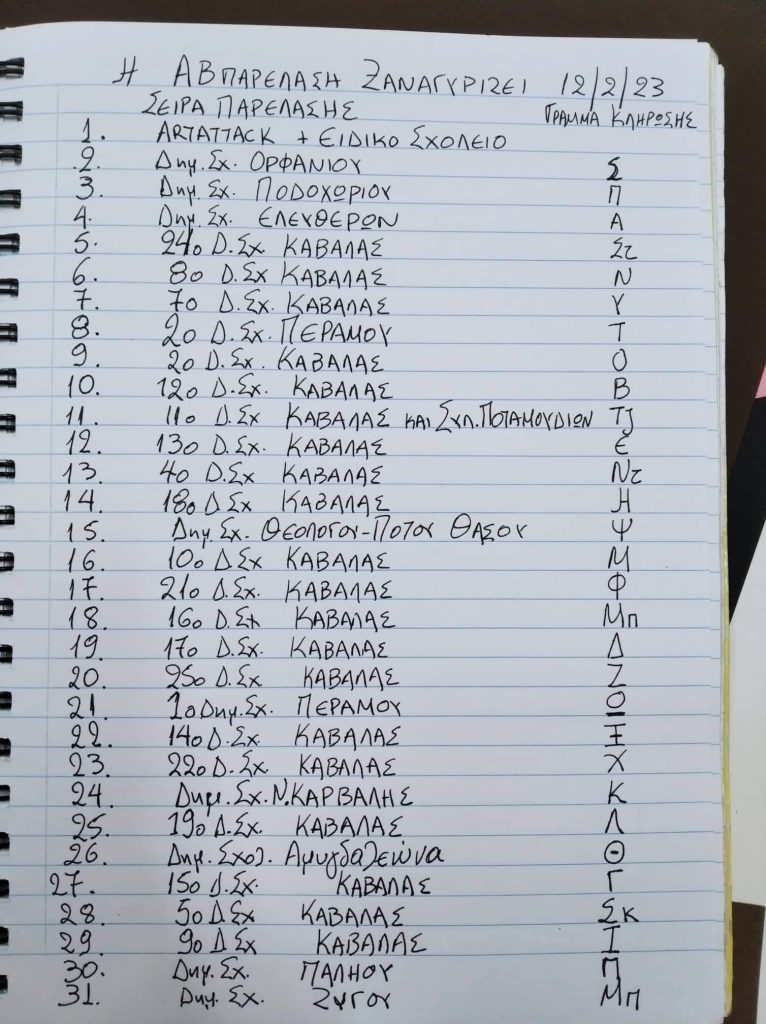 Η ΑΒΠΑΡΕΛΑΣΗ ΞΑΝΑΓΥΡΙΖΕΙ 12/2/23
ΣΕΙΡΑ ΠΑΡΕΛΑΣΗΣ ΓΡΑΜΜΑ ΚΛΗΡΩΣΗΣ
1. ARTATTACK + ΕΙΔΙΚΟ ΣΧΟΛΕΙΟ
2. Δημ. Σχ. ΟΡΦΑΝΙΟΥ Σ
3. Δημ. Σχ. ΠΟΔΟΧΩΡΙΟΥ Π
4. Δημ. Σχ. ΕΛΕΥΘΕΡΩΝ Α
5. 24ο Δ. Σχ ΚΑΒΑΛΑΣ Στ
6. 8ο Δ. Σχ ΚΑΒΑΛΑΣ Ν
7. 7ο Δ. Σχ. ΚΑΒΑΛΑΣ Υ
8. 2ο Δ. Σχ. ΠΕΡΑΜΟΥ Τ
9. 2ο Δ. Σχ. ΚΑΒΑΛΑΣ Ο
10. 12ο Δ. Σχ. ΚΑΒΑΛΑΣ Β
11. 11ο Δ. Σχ ΚΑΒΑΛΑΣ ΚΑΙ Συλ. ΠΟΤΑΜΟΥΔΙΩΝ ΤΖ
12. 13ο Δ. Σχ. ΚΑΒΑΛΑΣ Ε
13. 4ο Δ. Σχ ΚΑΒΑΛΑΣ Ντ
14. 18ο Δ Σχ ΚΑΒΑΛΑΣ Η
15. Δημ. Σχ. ΘΕΟΛΟΓΟΥ-ΠΟΤΟΥ ΘΑΣΟΥ Ψ
16. 10ο Δ Σχ ΚΑΒΑΛΑΣ Μ
17. 21ο Δ. Σχ. ΚΑΒΑΛΑΣ Φ
18. 16ο Δ. Σχ ΚΑΒΑΛΑΣ Μπ
19. 17ο Δ. Σχ. ΚΑΒΑΛΑΣ Δ
20. 25ο Δ. Σχ ΚΑΒΑΛΑΣ Ζ
21. 1ο Δημ. Σχ. ΠΕΡΑΜΟΥ Ω
22. 14ο Δ. Σχ ΚΑΒΑΛΑΣ Ξ
23. 22ο Δ. Σχ. ΚΑΒΑΛΑΣ Χ
24. Δημ. Σχ. Ν. ΚΑΡΒΑΛΗΣ Κ
25. 19ο Δ. Σχ. ΚΑΒΑΛΑΣ Λ
26. Δημ. Σχολ. Αμυγδαλεώνα Θ
27. 15ο Δ. Σχ. ΚΑΒΑΛΑΣ Γ
28. 5ο Δ Σχ ΚΑΒΑΛΑΣ Σκ
29. 9ο Δ Σχ ΚΑΒΑΛΑΣ Ι
30. Δημ. Σχ. ΠΑΛΗΟΥ Π
31. Δημ. Σχ. ΖΥΓΟΥ Μπ